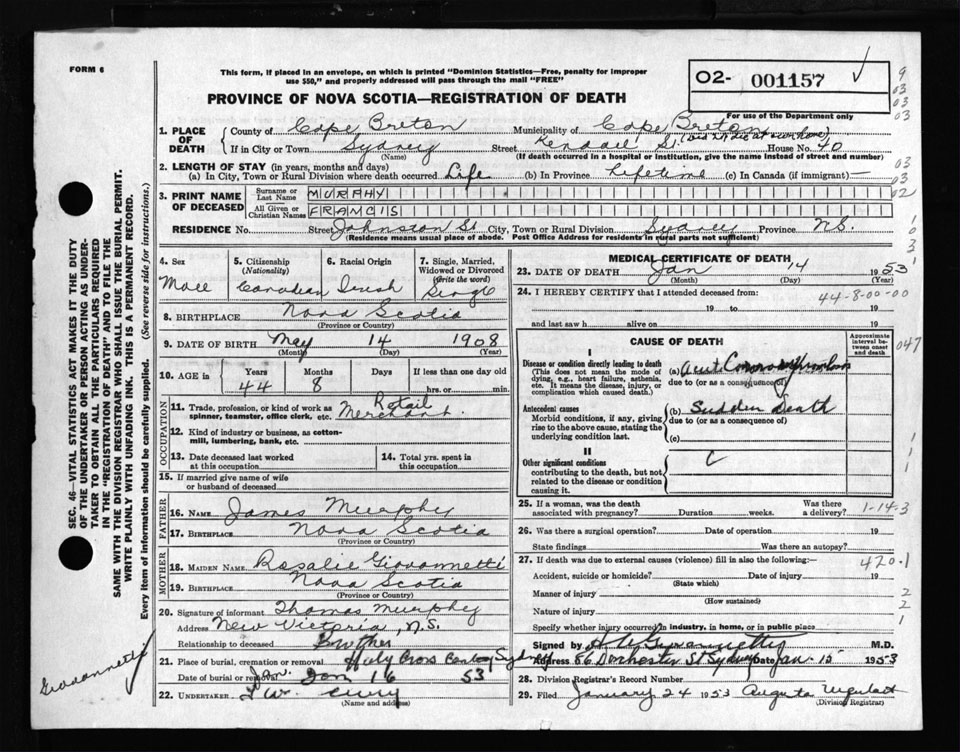 FORM 6
This form, if placed in an envelope, on which is printed "Dominion Statistics—Free, penalty for improper
use $50," and properly addressed will pass through the mail "FREE"
02- 001157
For use of the Department only
PROVINCE OF NOVA SCOTIA—REGISTRATION OF DEATH
1. PLACE OF DEATH
County of Cape Breton Municipality of Cape Breton
If in City or Town Sydney (Name) Street Kendall St. (Did not die at own home) House No. 40
(If death occurred in a hospital or institution, give the name instead of street and number)
2. LENGTH OF STAY (in years, months and days)
(a) In City, Town or Rural Division where death occurred Life (b) In Province Lifetime (c) In Canada (if immigrant) —
3. PRINT NAME OF DECEASED
Surname or Last Name MURPHY
All Given or Christian Names FRANCIS
RESIDENCE No. Street Johnston St City, Town or Rural Division Sydney Province N.S.
(Residence means usual place of abode. Post Office Address for residents in rural parts not sufficient)
4. Sex Male
5. Citizenship (Nationality) Canadian
6. Racial Origin Irish
7. Single, Married, Widowed or Divorced (Write the word) Single
8. BIRTHPLACE Nova Scotia
(Province or Country)
9. DATE OF BIRTH May 14 1908
(Month) (Day) (Year)
10. AGE in Years 44 Months 8 Days If less than one day old hrs. or min.
OCCUPATION
11. Trade, profession, or kind of work as spinner, teamster, office clerk, etc. Retail Merchant
12. Kind of industry or business, as cotton-mill, lumbering, bank, etc.
13. Date deceased last worked at this occupation
14. Total yrs. spent in this occupation
15. If married give name of wife or husband of deceased
FATHER
16. NAME James Murphy
17. BIRTHPLACE Nova Scotia
(Province or Country)
MOTHER
18. MAIDEN NAME Rosalie Giovannetti
19. BIRTHPLACE Nova Scotia
(Province or Country)
20. Signature of informant Thomas Murphy
Address New Victoria, N.S.
Relationship to deceased Brother
21. Place of burial, cremation or removal Holy Cross Sydney
Date of burial or removal Jan 16 53
22. UNDERTAKER T.W. Curry
(Name and address)
MEDICAL CERTIFICATE OF DEATH
23. DATE OF DEATH Jan 14 1953
(Month) (Day) (Year)
24. I HEREBY CERTIFY that I attended deceased from:
44-8-00-00
19 to 19
and last saw h alive on 19
CAUSE OF DEATH
Approximate interval between onset and death
I
Disease or condition directly leading to death
(This does not mean the mode of dying, e.g., heart failure, asthenia, etc. It means the disease, injury, or complication which caused death.)
(a) Acut Coronary Thrombosis
due to (or as a consequence of)
Antecedent causes
Morbid conditions, if any, giving rise to the above cause, stating the underlying condition last.
(b) Sudden Death
due to (or as a consequence of)
(c)
II
Other significant conditions
contributing to the death, but not related to the disease or condition causing it.
25. If a woman, was the death associated with pregnancy? Duration weeks. Was there a delivery?
1-14-3
26. Was there a surgical operation? Date of operation 19
State findings Was there an autopsy?
27. If death was due to external causes (violence) fill in also the following:—
420.1
Accident, suicide or homicide? Date of injury 19
(State which)
Manner of injury
(How sustained)
Nature of injury
Specify whether injury occurred in industry, in home, or in public place
Signed by H. Giovannetti M.D.
Address 86 Dorchester St Sydney Date Jan-15 1953
28. Division Registrar's Record Number
29. Filed January 24 1953 Augusta
(Division Registrar)
SEC. 46—VITAL STATISTICS ACT MAKES IT THE DUTY
OF THE UNDERTAKER OR PERSON ACTING AS UNDER-
TAKER TO OBTAIN ALL THE PARTICULARS REQUIRED
IN THE "REGISTRATION OF DEATH" AND TO FILE THE
SAME WITH THE DIVISION REGISTRAR WHO SHALL ISSUE THE BURIAL PERMIT.
WRITE PLAINLY WITH UNFADING INK. THIS IS A PERMANENT RECORD.
Every item of information should be carefully supplied. (See reverse side for instructions.)
Giovannetti
9
03
03
03
03
03
02
047
2
2
1